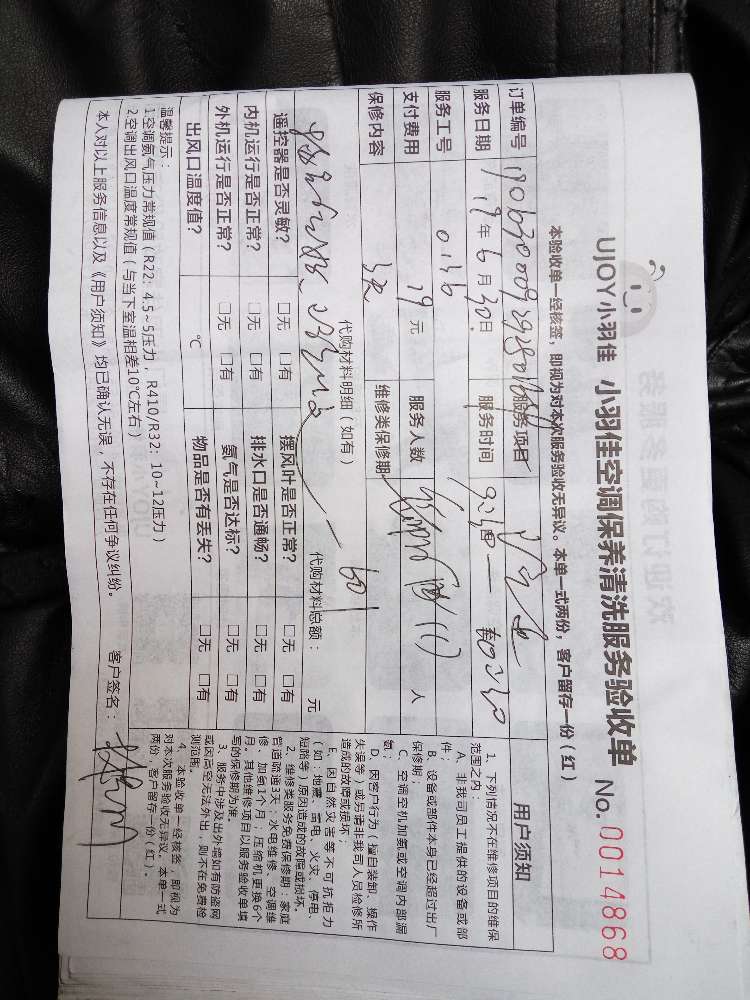 UJOY小羽佳 小羽佳空调保养清洗服务验收单 No.0014868
本验收单一经核签，即视为对本次服务验收无异议。本单一式两份，客户留存一份（红）
订单编号 服务项目
服务日期 19年6月30日 服务时间
服务工号 0136 服务人数 (1) 人
支付费用 19元 维修类保修期
保修内容
代购材料明细（如有） 代购材料总额： 元
遥控器是否灵敏？ □无 □有 摆风叶是否正常？ □无 □有
内机运行是否正常？ □无 □有 排水口是否通畅？ □无 □有
外机运行是否正常？ □无 □有 氨气是否达标？ □无 □有
出风口温度值？ ℃ 物品是否有丢失？ □无 □有
温馨提示：
1空调氨气压力常规值（R22：4.5~5压力，R410/R32：10~12压力）
2.空调出风口温度常规值（与当下室温相差10℃左右）
本人对以上服务信息以及《用户须知》均已确认无误，不存在任何争议纠纷。 客户签名：
用户须知
1、下列情况不在维修项目的维保
范围之内：
A、非我司员工提供的设备或部
件；
B、设备或部件本身已经超过出厂
保修期；
C、空调空机加氨或空调内部漏
氨；
D、因客户行为（擅自装卸、操作
失误等）或另请非我司人员检修所
造成的故障或损坏；
E、因自然灾害等不可抗拒力
（如：地震、雷电、火灾、停电、
短路等）原因造成的故障或损坏。
2、维修类服务免费保修期：家庭
管道疏通3天，水电维修、空调维
修、加氨1个月；压缩机更换6个
月。其他维修项目以服务验收单填
写的保修期为准。
3、服务中涉及出外墙如有防盗网
或因高空无法外出，则不在免费检
测范围。
4、本验收单一经核签，即视为
对本次服务验收无异议。本单一式
两份，客户留存一份（红）。